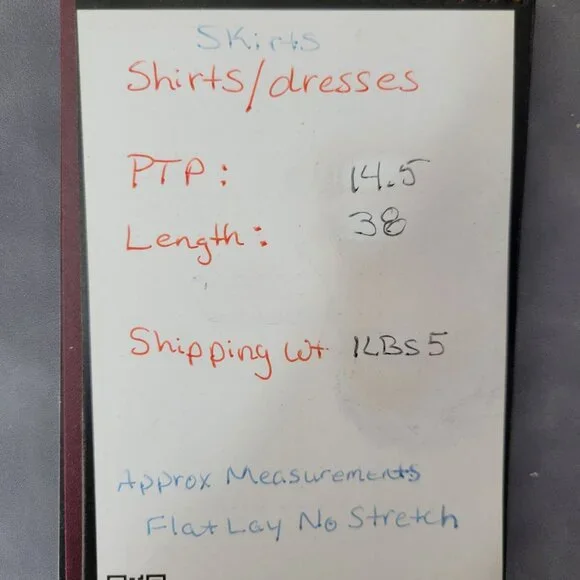 Skirts
Shirts/dresses
PTP: 14.5
Length: 38
Shipping Wt 1LBS 5
Approx Measurements
Flat Lay No Stretch